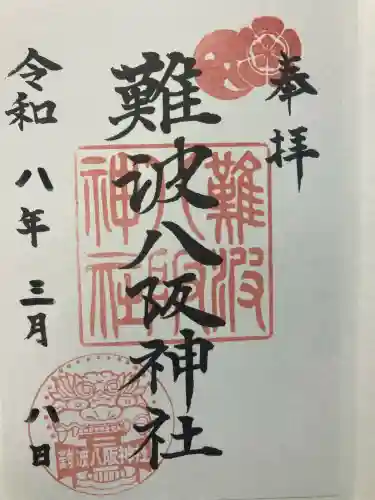 奉拝
難波八阪神社
令和八年三月八日
難波
八阪
神社
難波八阪神社